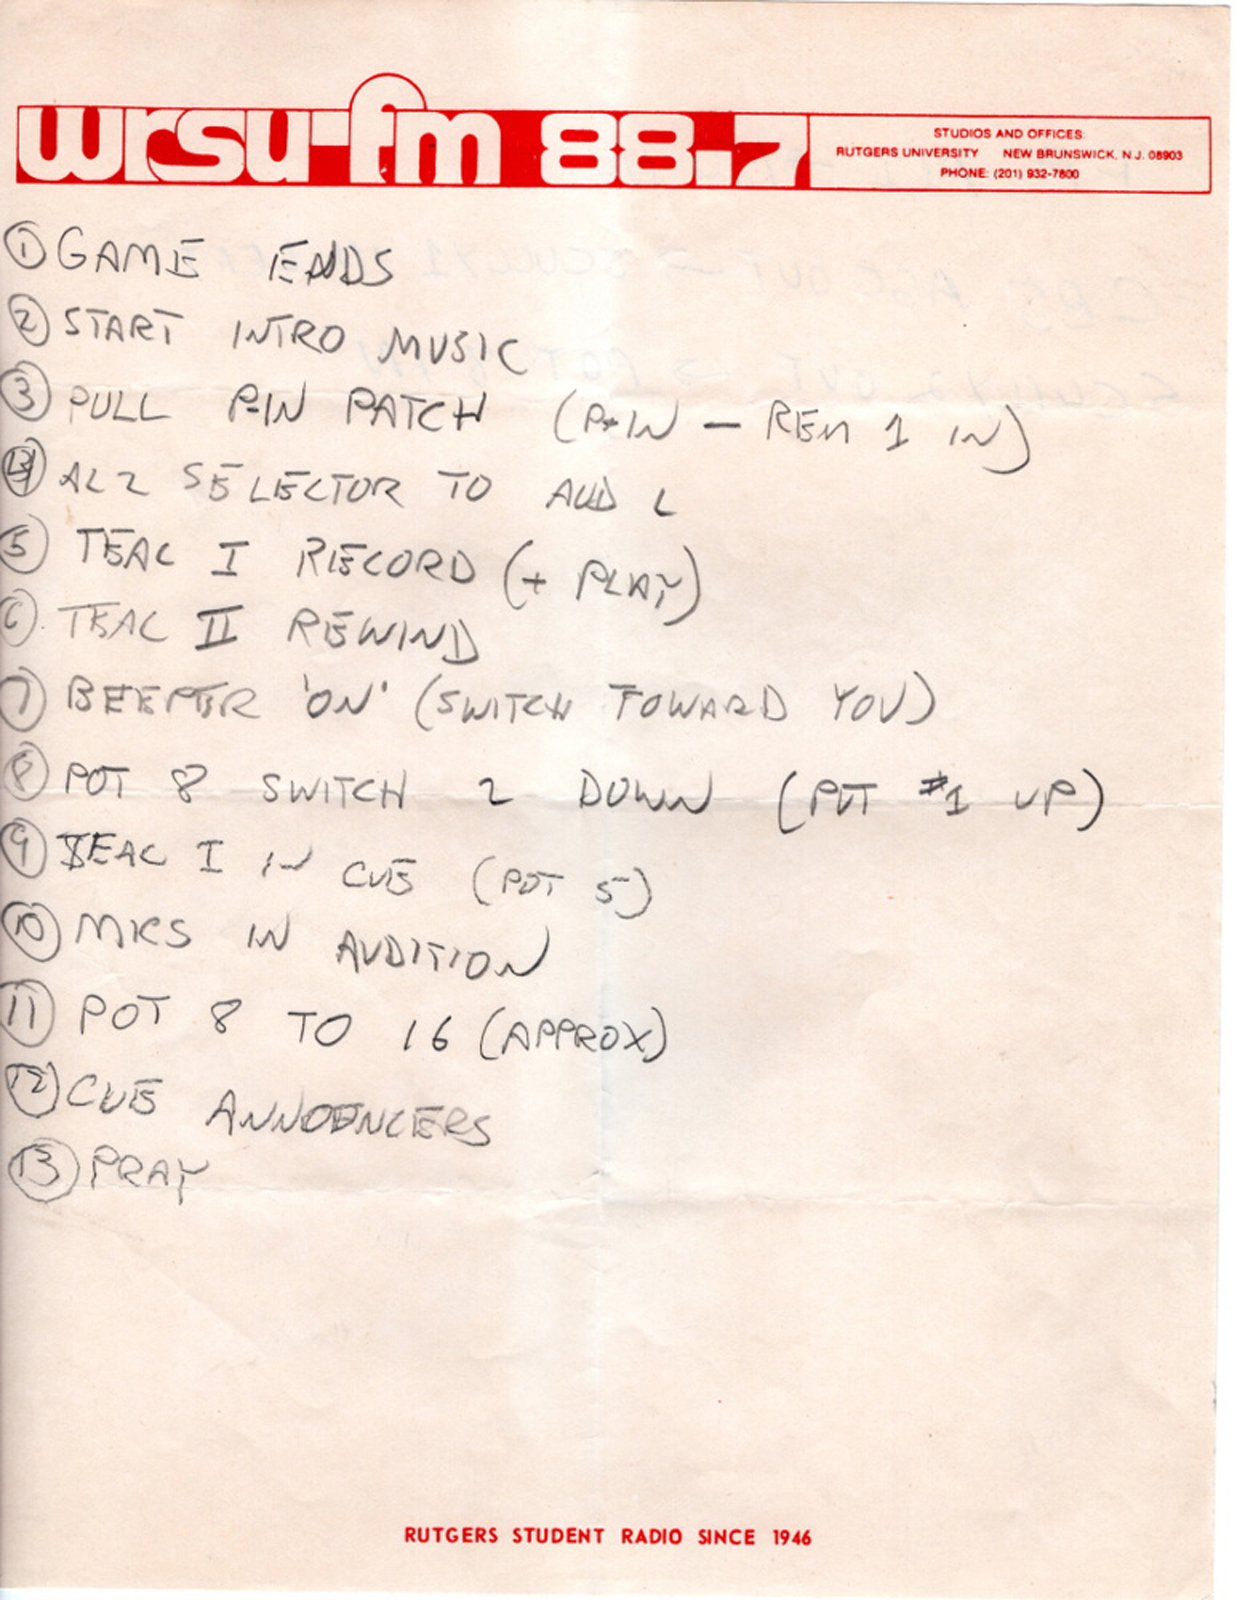 wrsu-fm 88.7
STUDIOS AND OFFICES:
RUTGERS UNIVERSITY NEW BRUNSWICK, N.J. 08903
PHONE: (201) 932-7800
① GAME ENDS
② START INTRO MUSIC
③ PULL P-IN PATCH (P+IN — REM 1 IN)
④ AL2 SELECTOR TO AUD L
⑤ TEAC I RECORD (+ PLAY)
⑥ TEAC II REWIND
⑦ BEEPER 'ON' (SWITCH TOWARD YOU)
⑧ POT 8 SWITCH 2 DOWN (PUT #1 UP)
⑨ TEAC I IN CUE (POT 5)
⑩ MICS IN AUDITION
⑪ POT 8 TO 16 (APPROX)
⑫ CUE ANNOUNCERS
⑬ PRAY
RUTGERS STUDENT RADIO SINCE 1946